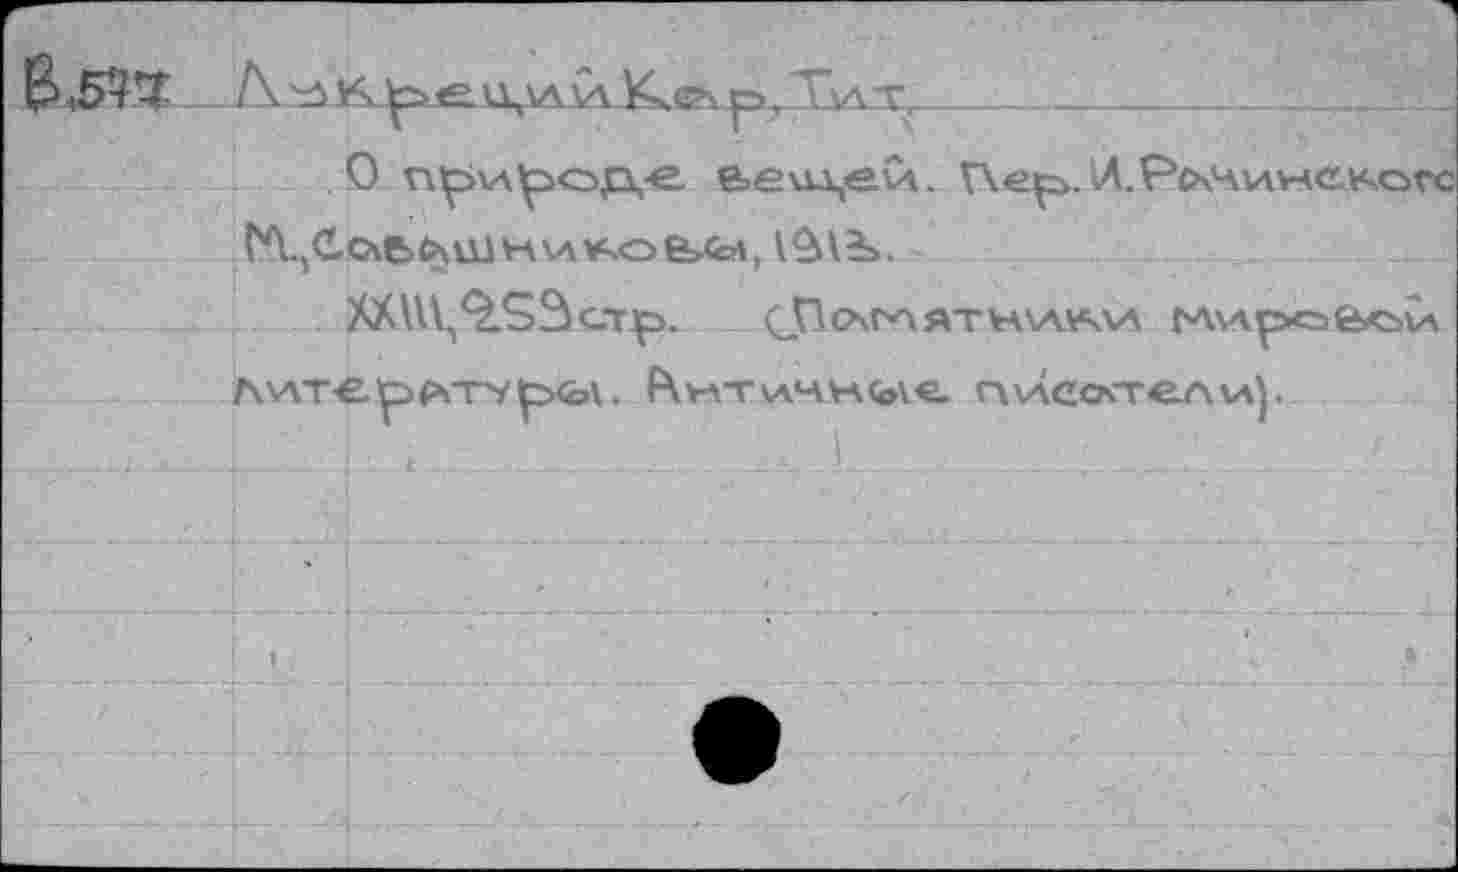 Лукреций Кар, Тит.
О природе вещей. Пер. И.Рачинского
М., Сабашниковы, 1913.
XXIII, стр. (Памятники мировой
литературы. Античные писатели).